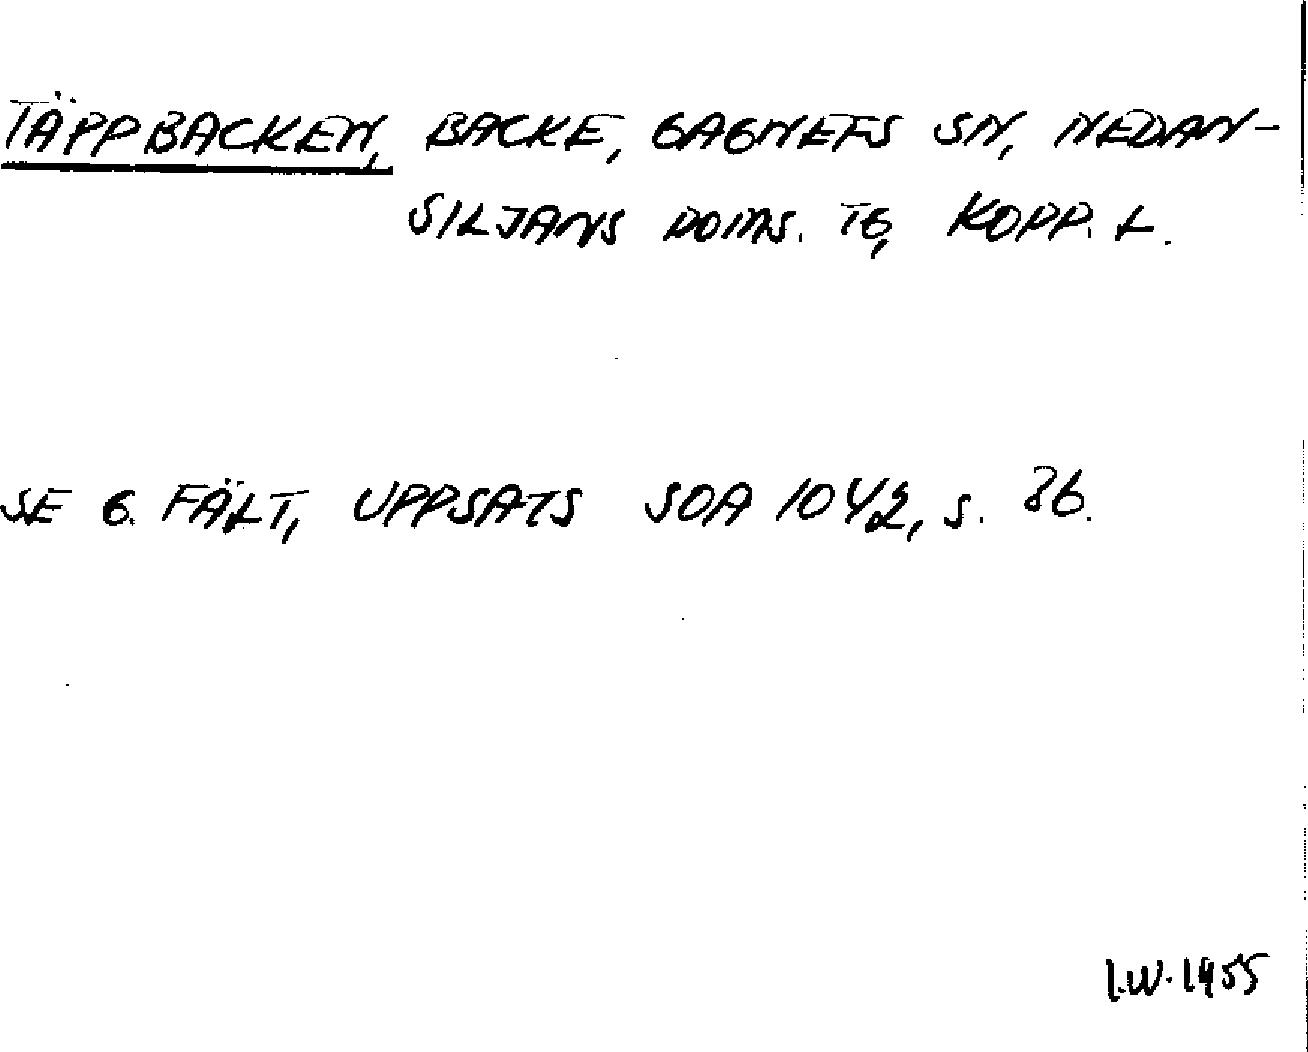 TÄPPBACKEN, BACKE, GAGNEFS SN, NEDAN-
SILJANS DOMS. TG, KOPP. L.
SE G. FÄLT, UPPSATS SOA 1042, s. 36.
I.W. 1955